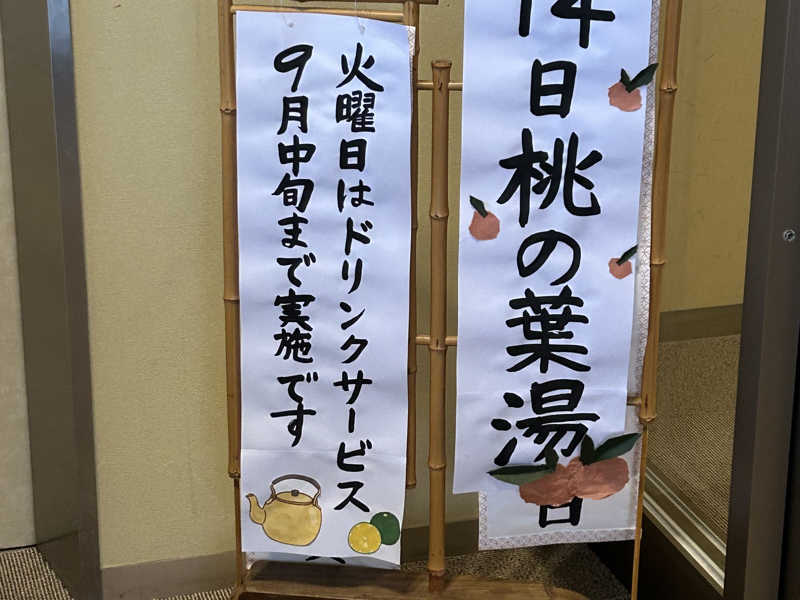 14日桃の葉湯
日
火曜日はドリンクサービス
9月中旬まで実施です